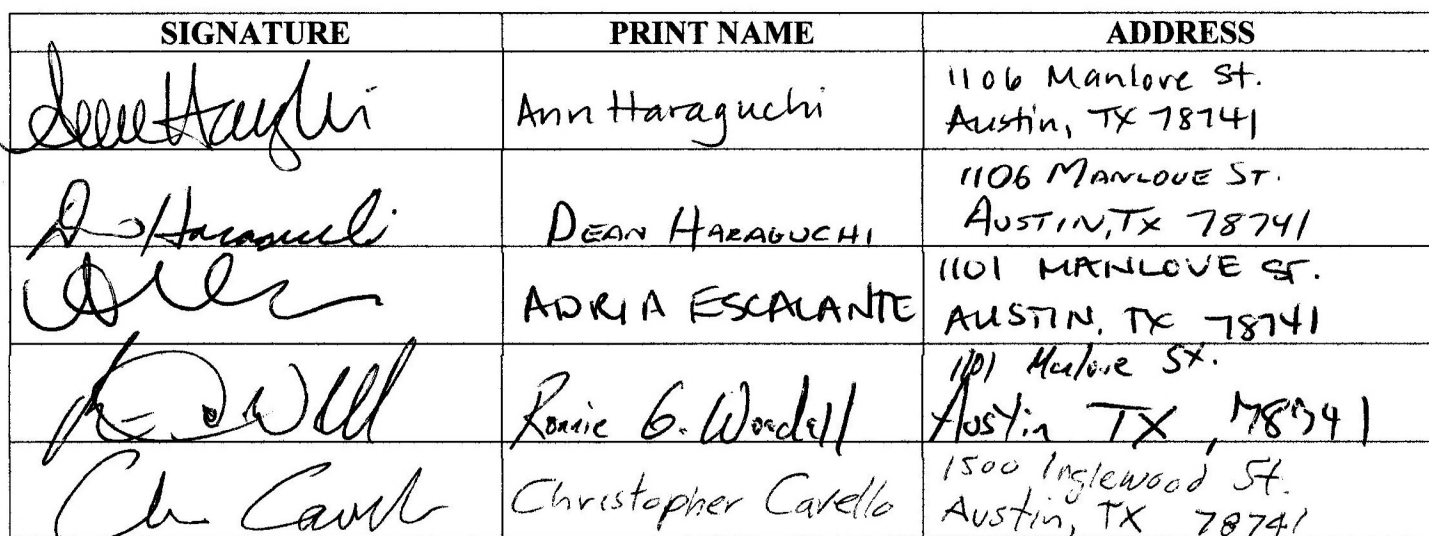 SIGNATURE PRINT NAME ADDRESS
Ann Haraguchi
1106 Manlove St.
Austin, TX 78741
Haraguchi
DEAN HARAGUCHI
1106 MANLOVE ST.
AUSTIN, TX 78741
ADRIA ESCALANTE
1101 MANLOVE ST.
AUSTIN, TX 78741
Ronnie G. Woodall
1101 Manlove St.
Austin TX, 78741
Christopher Cavello
1500 Inglewood St.
Austin, TX 78741